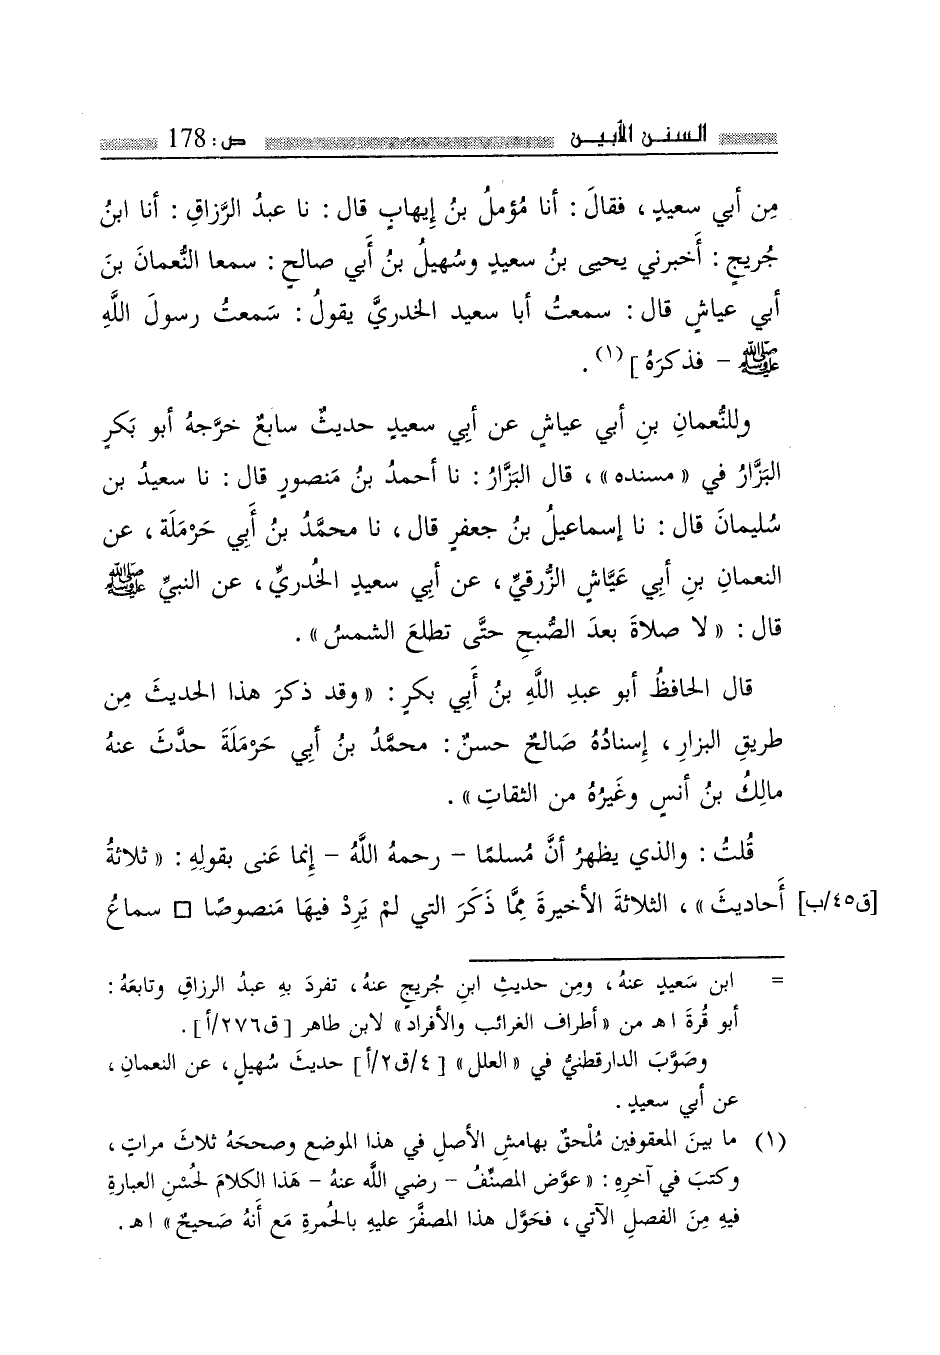 السنن الأبين ص: 178
مِن أبي سعيدٍ ، فقالَ : أنا مُؤملُ بنُ إِيهابٍ قال : نا عبدُ الرَّزاقِ : أنا ابنُ
جُريجٍ : أَخبرني يحيى بنُ سعيدٍ وسُهيلُ بنُ أَبي صالحٍ : سمعا النُّعمانَ بنَ
أبي عياشٍ قال : سمعتُ أبا سعيد الخدريَّ يقولُ : سَمعتُ رسولَ اللَّهِ
ﷺ – فذكرَهُ ] (١) .
وللنُّعمانِ بنِ أبي عياشٍ عن أبي سعيدٍ حديثٌ سابعٌ خرَّجهُ أبو بَكرٍ
البَزَّارُ في « مسنده » ، قال البَزَّارُ : نا أحمدُ بنُ مَنصورٍ قال : نا سعيدُ بن
سُليمانَ قال : نا إسماعيلُ بنُ جعفرٍ قال ، نا محمَّدُ بنُ أَبِي حَرْمَلَة ، عن
النعمانِ بنِ أبي عَيَّاشٍ الزُّرقيِّ ، عن أبي سعيدٍ الخُدريِّ ، عن النبيِّ ﷺ
قال : « لا صلاةَ بعدَ الصُّبحِ حتَّى تطلعَ الشمسُ » .
قال الحافظُ أبو عبدِ اللَّهِ بنُ أَبِي بكرٍ : « وقد ذكرَ هذا الحديثَ مِن
طريقِ البزارِ ، إِسنادُهُ صَالحٌ حسنٌ : محمَّدُ بنُ أبي حَرْمَلَةَ حدَّثَ عنهُ
مالِكُ بنُ أنسٍ وغَيرُهُ من الثقاتِ » .
قُلتُ : والذي يظهرُ أنَّ مُسلمًا – رحمهُ اللَّهُ – إِنما عَنى بقولِهِ : « ثلاثةُ
[ق٤٥/ب] أَحاديثَ » ، الثلاثةَ الأخيرةَ مِمَّا ذَكَرَ التي لمْ يَرِدْ فيهَا مَنصوصًا □ سماعُ
= ابن سَعيدٍ عنهُ ، ومِن حديثِ ابنِ جُريجٍ عنهُ ، تفردَ بهِ عبدُ الرزاقِ وتابعَهُ :
أبو قُرةَ اهـ من « أطراف الغرائب والأفراد » لابن طاهر [ ق٢٧٦/أ ] .
وصَوَّبَ الدارقطنيُّ في « العلل » [ ٤/ق٢/أ ] حديثَ سُهيلٍ ، عن النعمانِ ،
عن أبي سعيدٍ .
(١) ما بينَ المعقوفين مُلْحقٌ بهامشِ الأصلِ في هذا الموضع وصححَهُ ثلاثَ مراتٍ ،
وكتبَ في آخرِهِ : « عوَّض المصنِّفُ – رضي اللَّه عنهُ – هَذا الكلامَ لحُسْنِ العبارةِ
فيهِ مِنَ الفصلِ الآتي ، فحَوَّل هذا المصفَّرَ عليهِ بالحُمرةِ مَع أَنهُ صَحيحٌ » اهـ .